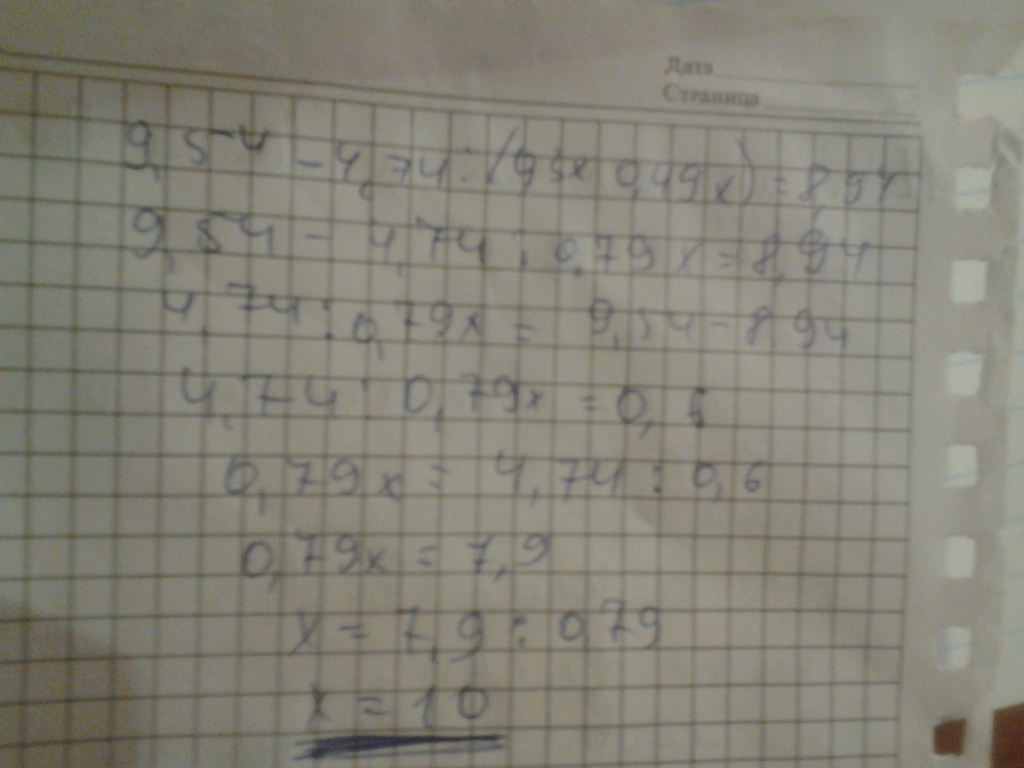 Дата
Страница
9,54 - 4,74 : (0,3x 0,49x) = 8,94
9,54 - 4,74 : 0,79x = 8,94
4,74 : 0,79x = 9,54 - 8,94
4,74 : 0,79x = 0,6
0,79x = 4,74 : 0,6
0,79x = 7,9
x = 7,9 : 0,79
x = 10